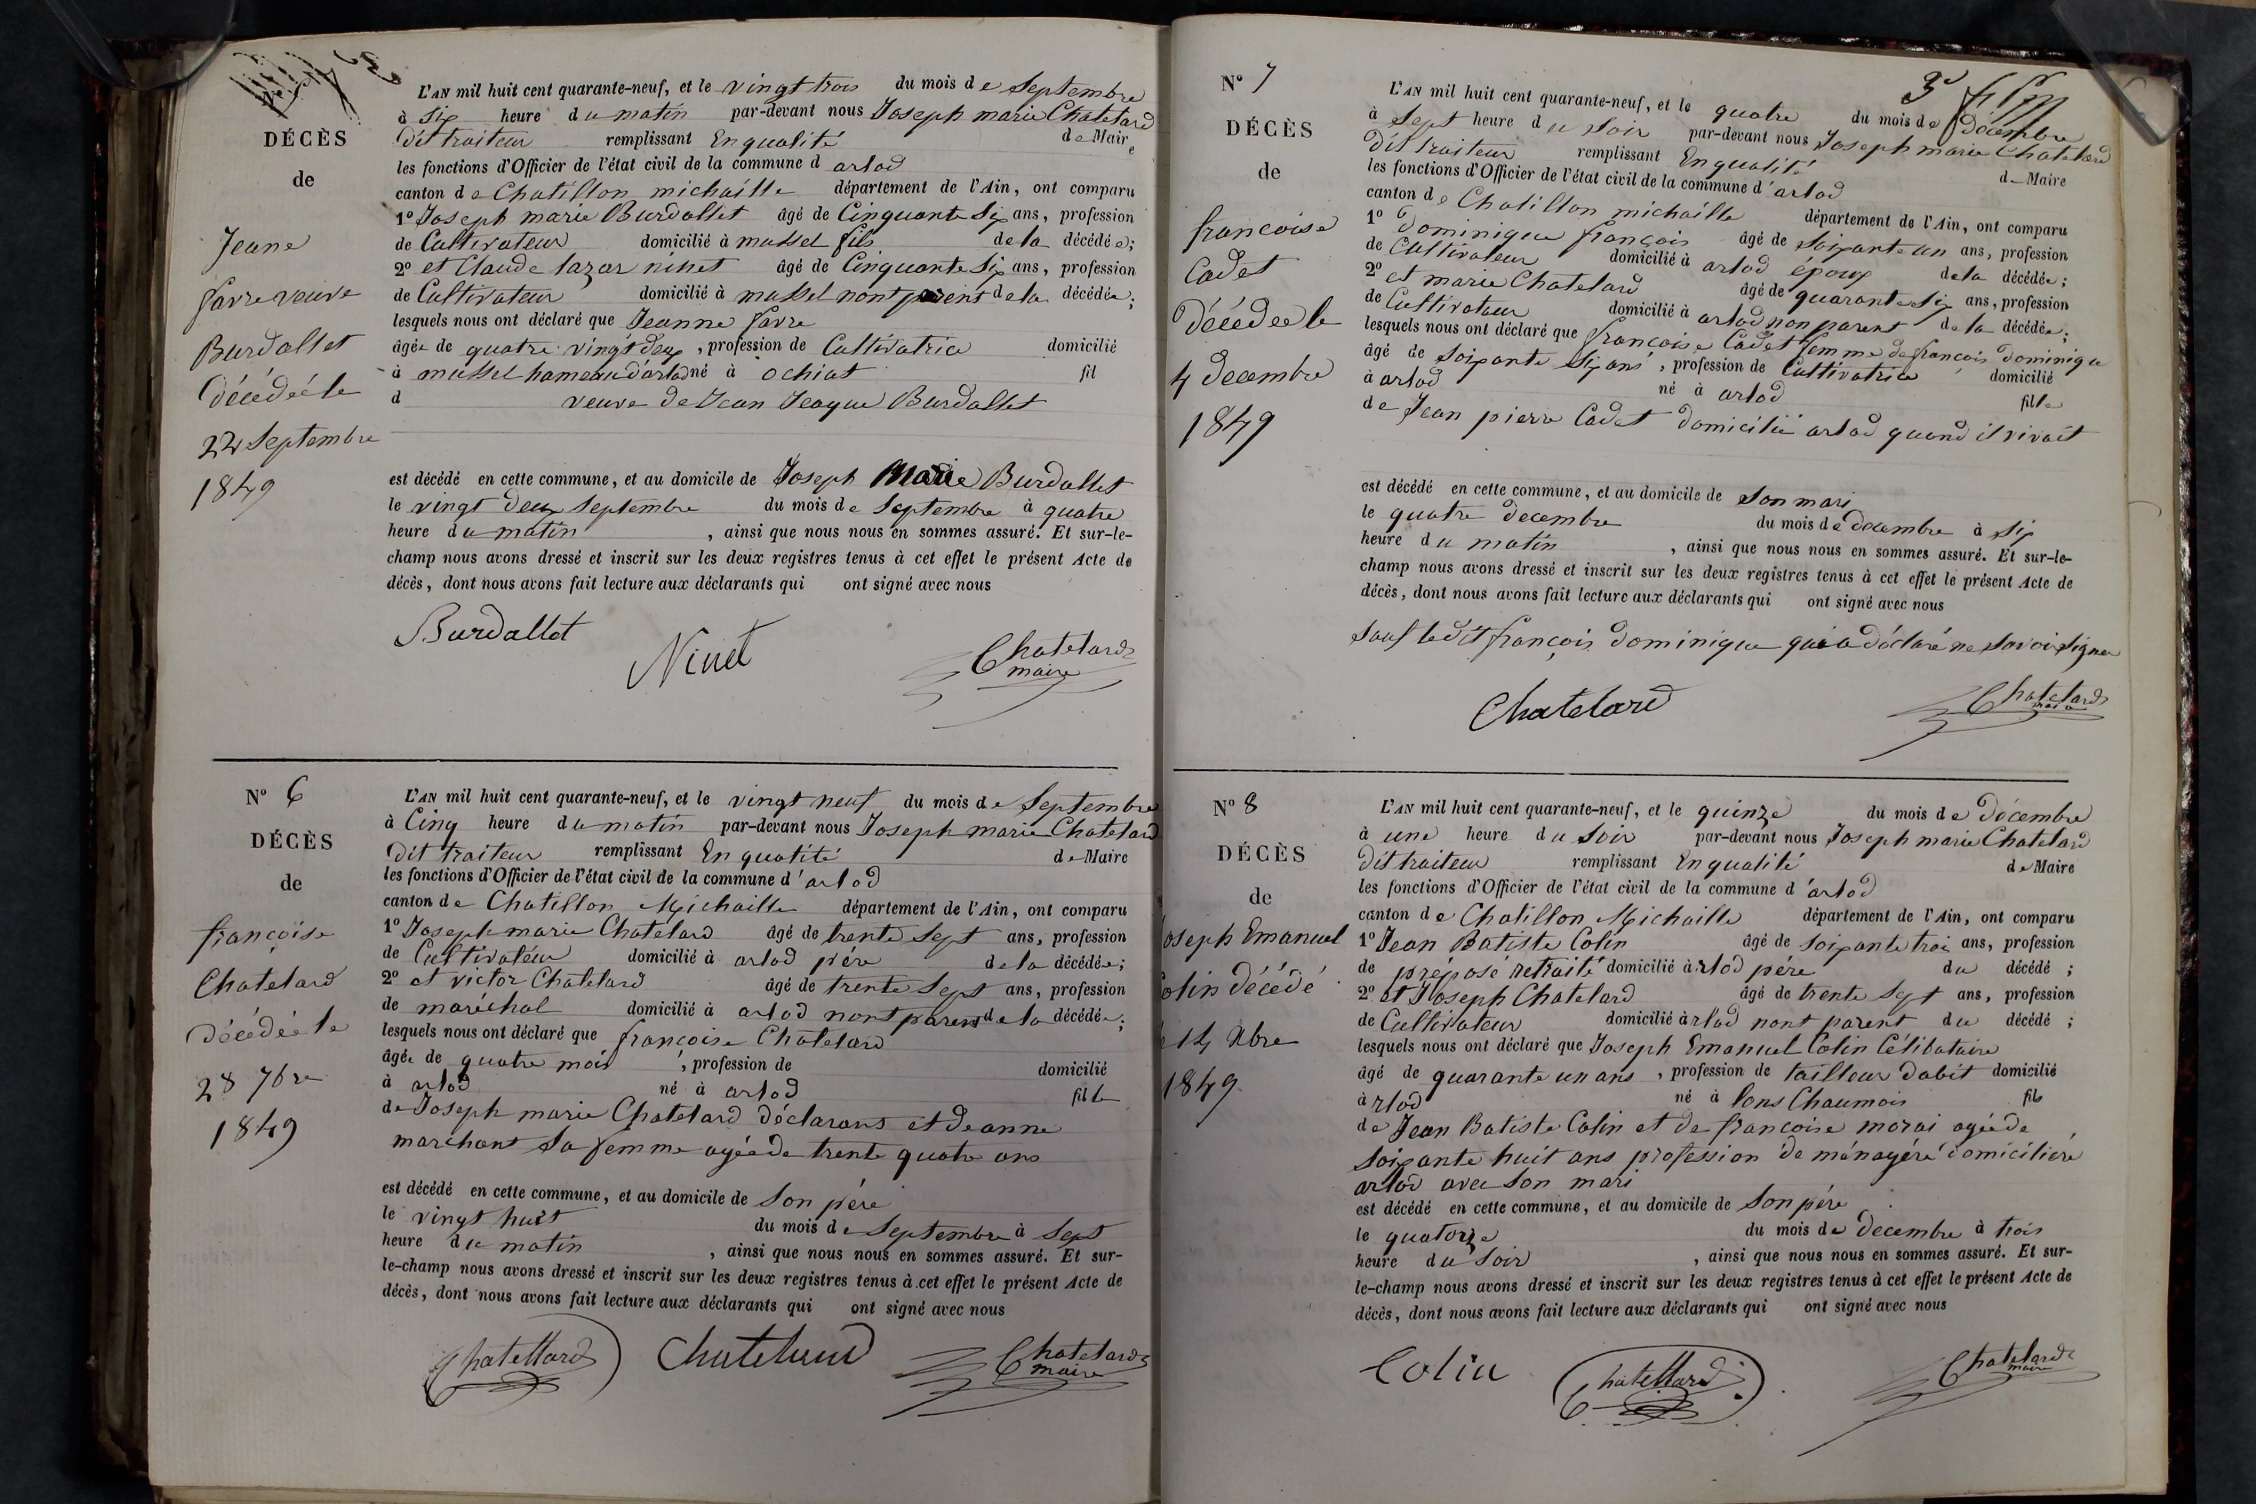 DÉCÈS
de
Jeane
favre veuve
Burdallet
décédée le
22 Septembre
1849
L'AN mil huit cent quarante-neuf, et le vingt trois du mois de Septembre
à Six heure du matin par-devant nous Joseph marie Chatelard
dit traiteur remplissant En qualité de Maire
les fonctions d'Officier de l'état civil de la commune d arlod
canton de Chatillon michaille département de l'Ain, ont comparu
1° Joseph marie Burdallet âgé de Cinquante Six ans, profession
de Cultivateur domicilié à mussel fils de la décédée;
2° et Claude lazar ninet âgé de Cinquante Six ans, profession
de Cultivateur domicilié à mussel nont parent de la décédée;
lesquels nous ont déclaré que Jeanne favre
âgée de quatre vingt deux, profession de Cultivatrice domicilié
à mussel hameau d'arlod né à ochiat fil
d veuve de Jean Jeaque Burdallet
est décédé en cette commune, et au domicile de Joseph Marie Burdallet
le vingt deux Septembre du mois de Septembre à quatre
heure du matin, ainsi que nous nous en sommes assuré. Et sur-le-
champ nous avons dressé et inscrit sur les deux registres tenus à cet effet le présent Acte de
décès, dont nous avons fait lecture aux déclarants qui ont signé avec nous
Burdallet
Ninet
Chatelard
maire
N° 6
DÉCÈS
de
françoise
Chatelard
décédée le
28 7bre
1849
L'AN mil huit cent quarante-neuf, et le vingt neuf du mois de Septembre
à Cinq heure du matin par-devant nous Joseph marie Chatelard
dit traiteur remplissant En qualité de Maire
les fonctions d'Officier de l'état civil de la commune d'arlod
canton de Chatillon Michaille département de l'Ain, ont comparu
1° Joseph marie Chatelard âgé de trente Sept ans, profession
de Cultivateur domicilié à arlod pére de la décédée;
2° et victor Chatelard âgé de trente Sept ans, profession
de maréchal domicilié à arlod nont parens de la décédée;
lesquels nous ont déclaré que françoise Chatelard
âgée de quatre mois, profession de domicilié
à arlod né à arlod fille
de Joseph marie Chatelard déclarans et Jeanne
marchant Sa femme agée de trente quatre ans
est décédé en cette commune, et au domicile de Son pére
le vingt huit du mois de Septembre à Sept
heure du matin, ainsi que nous nous en sommes assuré. Et sur-
le-champ nous avons dressé et inscrit sur les deux registres tenus à cet effet le présent Acte de
décès, dont nous avons fait lecture aux déclarants qui ont signé avec nous
Chatellard
Chatelard
Chatelard
maire
3e
N° 7
DÉCÈS
de
francoise
Cadet
décédée le
4 decembre
1849
L'AN mil huit cent quarante-neuf, et le quatre du mois de décembre
à Sept heure du Soir par-devant nous Joseph marie Chatelard
dit traiteur remplissant En qualité de Maire
les fonctions d'Officier de l'état civil de la commune d'arlod
canton de Chatillon michaille département de l'Ain, ont comparu
1° dominique françois âgé de Soixante un ans, profession
de Cultivateur domicilié à arlod époux de la décédée;
2° et marie Chatelard âgé de quarante Six ans, profession
de Cultivateur domicilié à arlod non parent de la décédée;
lesquels nous ont déclaré que françoise Cadet femme de françois dominique
âgé de Soixante Six ans, profession de Cultivatrice domicilié
à arlod né à arlod fille
de Jean pierre Cadet domicilié arlod quand il vivait
est décédé en cette commune, et au domicile de Son mari
le quatre decembre du mois de decembre à Six
heure du matin, ainsi que nous nous en sommes assuré. Et sur-le-
champ nous avons dressé et inscrit sur les deux registres tenus à cet effet le présent Acte de
décès, dont nous avons fait lecture aux déclarants qui ont signé avec nous
Sauf le dit françois dominique qui a déclaré ne Savoir Signer
Chatelard
Chatelard
maire
N° 8
DÉCÈS
de
Joseph Emanuel
Colin décédé
le 14 Xbre
1849
L'AN mil huit cent quarante-neuf, et le quinze du mois de décembre
à une heure du Soir par-devant nous Joseph marie Chatelard
dit traiteur remplissant En qualité de Maire
les fonctions d'Officier de l'état civil de la commune d'arlod
canton de Chatillon Michaille département de l'Ain, ont comparu
1° Jean Batiste Colin âgé de Soixante trois ans, profession
de préposé retraité domicilié à rlod pére du décédé;
2° et Joseph Chatelard âgé de trente Sept ans, profession
de Cultivateur domicilié à rlod nont parent du décédé;
lesquels nous ont déclaré que Joseph Emanuel Colin Célibataire
âgé de quarante un ans, profession de tailleur dabit domicilié
à rlod né à lons Chaumois fils
de Jean Batiste Colin et de francoise morai agée de
Soixante huit ans profession de ménagére domiciliére
arlod avec Son mari
est décédé en cette commune, et au domicile de Son pére
le quatorze du mois de decembre à trois
heure du Soir, ainsi que nous nous en sommes assuré. Et sur-
le-champ nous avons dressé et inscrit sur les deux registres tenus à cet effet le présent Acte de
décès, dont nous avons fait lecture aux déclarants qui ont signé avec nous
Colin
Chatellard
Chatelard
maire